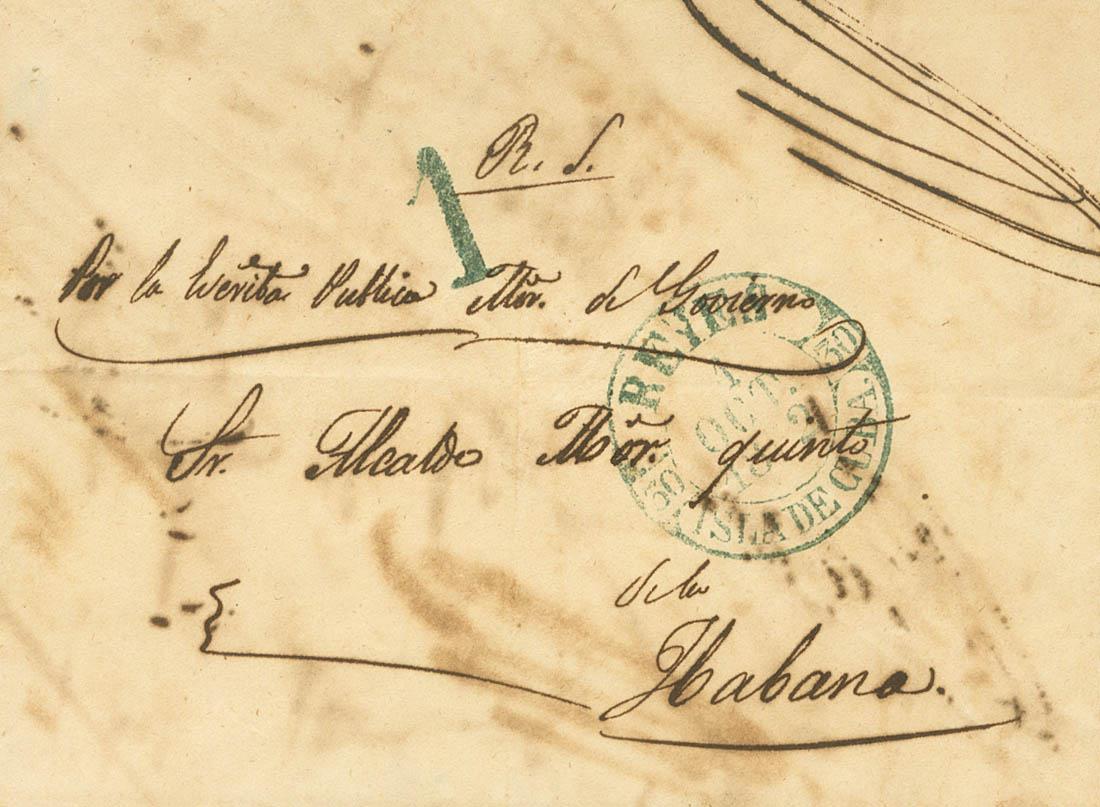 R. S.
1
Por la Escriba Publica Mor. de Govierno
Sr. Alcalde Mor. quinto
de la
Habana.
REYES
1
OCT.
30
30
ISLA DE CUBA.